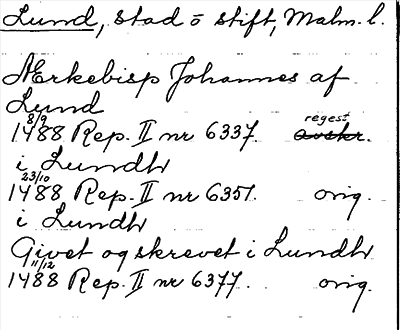 Lund, stad o stift, Malm. l.
Ærkebisp Johannes af
Lund
8/9 regest
1488 Rep. II nr 6337. avskr.
i Lundh
23/10
1488 Rep. II nr 6351. orig.
i Lundh
Givet og skrevet i Lundh
11/12
1488 Rep. II nr 6377. orig.